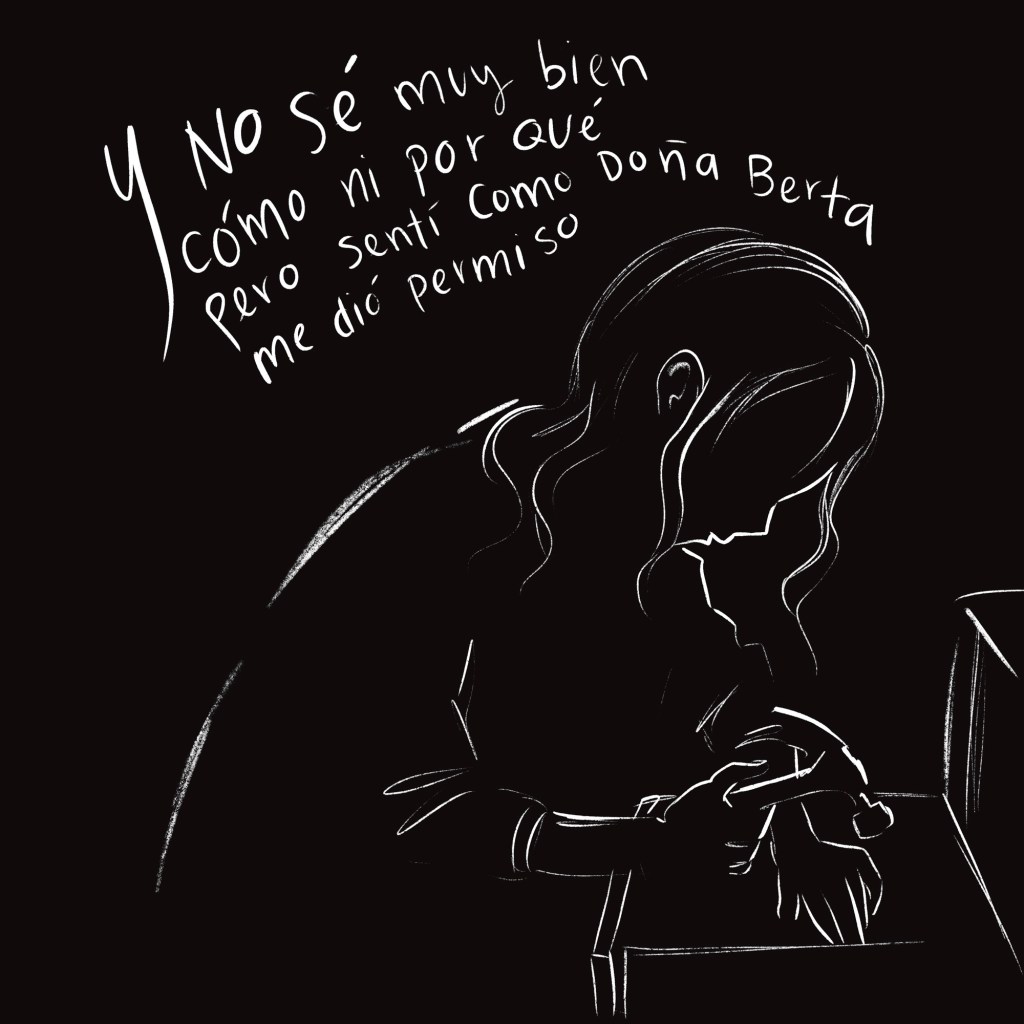 Y NO Sé muy bien
cómo ni por qué
pero sentí como Doña Berta
me dió permiso